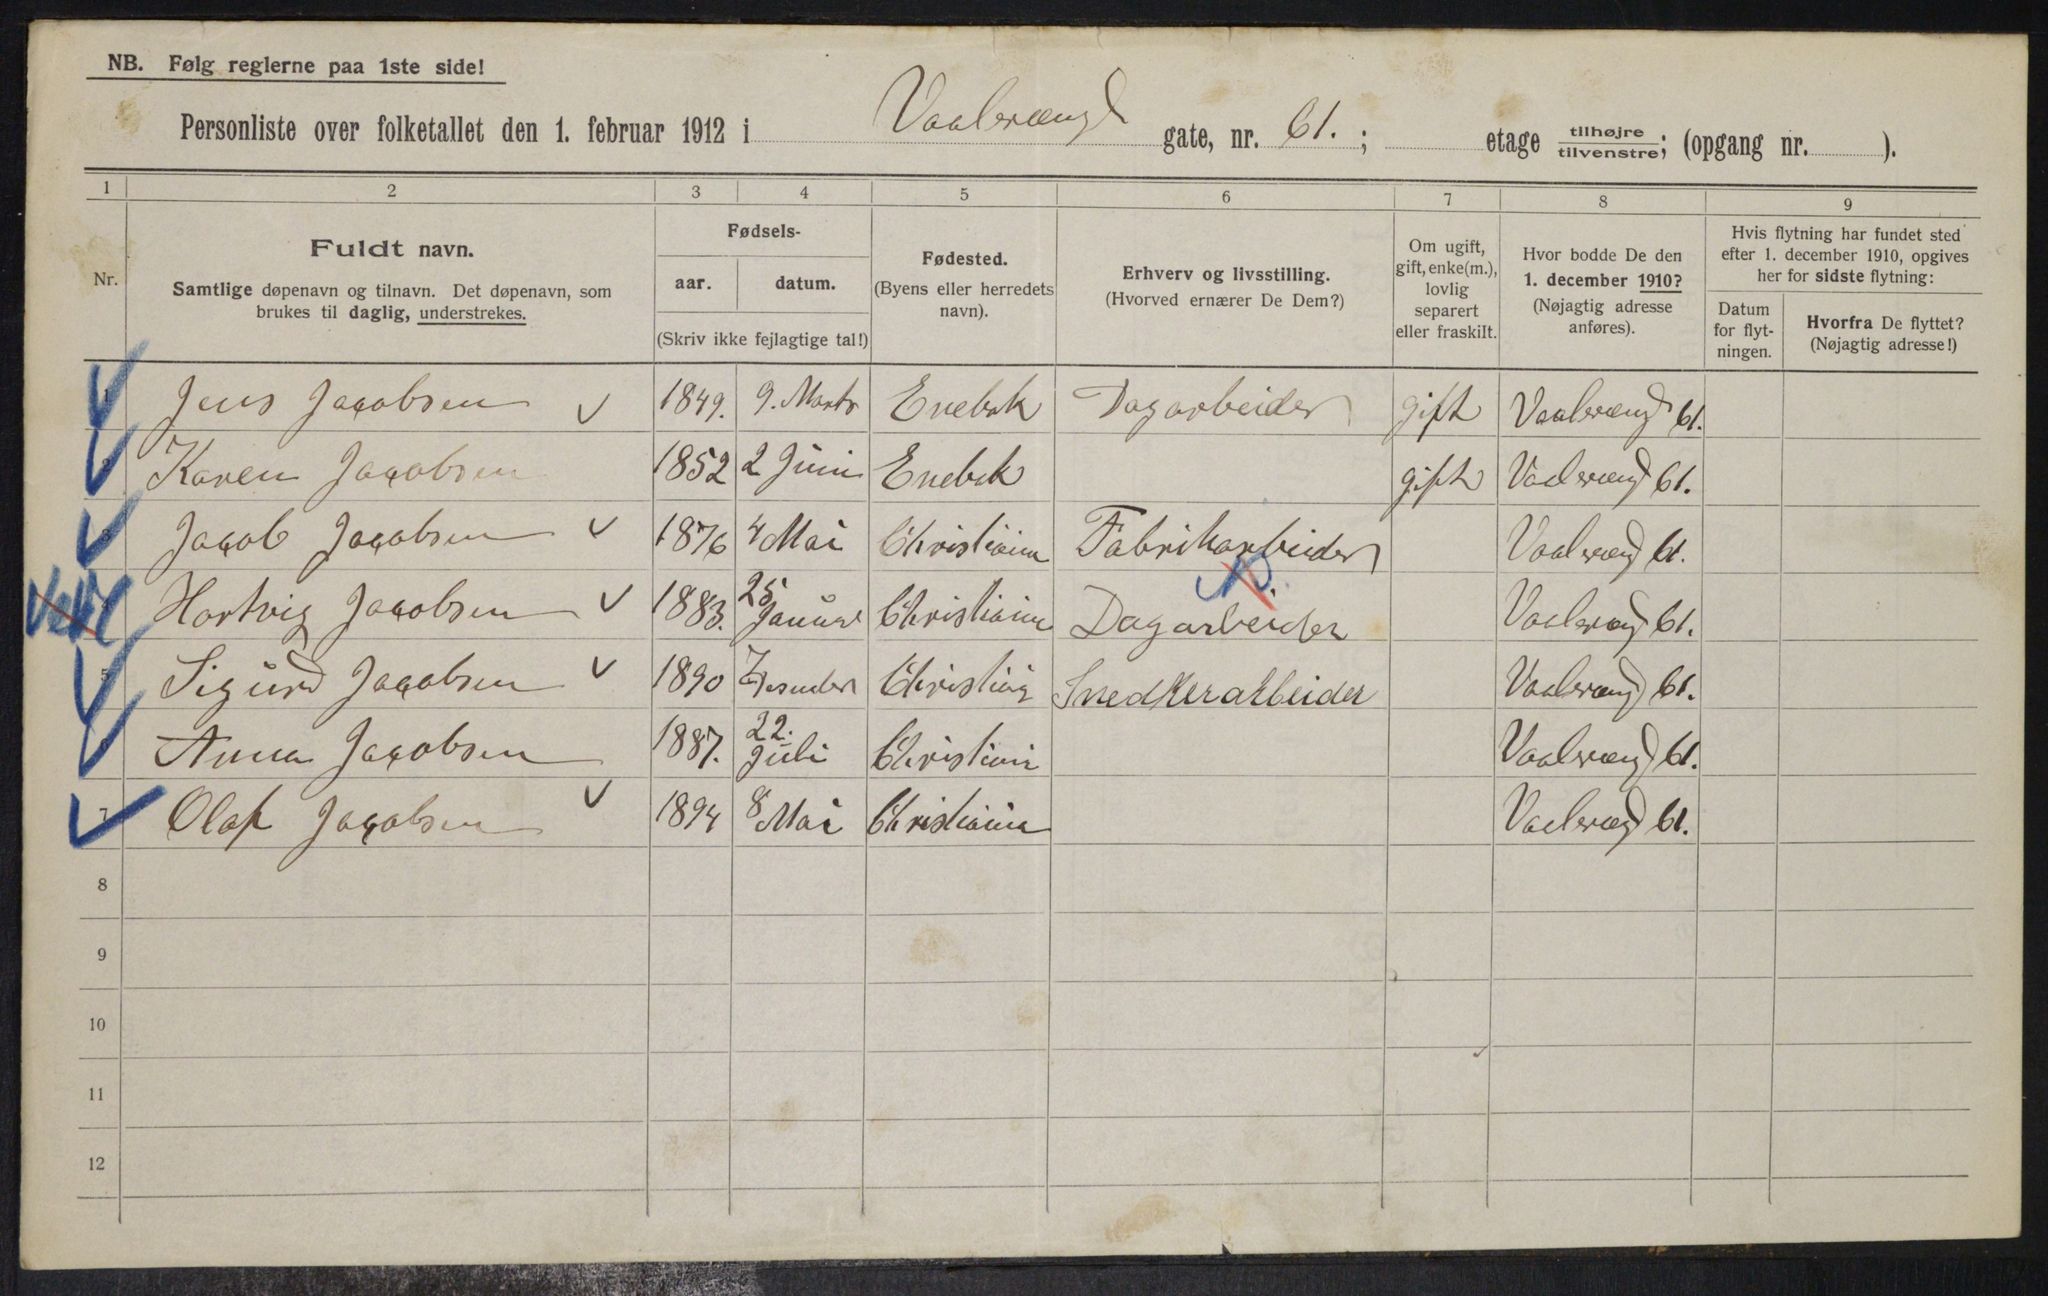 NB. Følg reglerne paa 1ste side!
Personliste over folketallet den 1. februar 1912 i Vaalerengd gate, nr. 61. ; etage tilhøjre/tilvenstre; (opgang nr. ).
1 2 3 4 5 6 7 8 9
Nr.
Fuldt navn.
Samtlige døpenavn og tilnavn. Det døpenavn, som
brukes til daglig, understrekes.
Fødsels-
aar. datum.
(Skriv ikke fejlagtige tal!)
Fødested.
(Byens eller herredets
navn).
Erhverv og livsstilling.
(Hvorved ernærer De Dem?)
Om ugift,
gift, enke(m.),
lovlig
separert
eller fraskilt.
Hvor bodde De den
1. december 1910?
(Nøjagtig adresse
anføres).
Hvis flytning har fundet sted
efter 1. december 1910, opgives
her for sidste flytning:
Datum
for flyt-
ningen.
Hvorfra De flyttet?
(Nøjagtig adresse!)
1 Jens Jacobsen 1849. 9. Marts Enebak Dagarbeider gift Vaalerengd 61.
2 Karen Jacobsen 1852 2 Juni Enebak gift Vaalerengd 61.
3 Jacob Jacobsen 1876 4 Mai Christiania Fabrikarbeider Vaalerengd 61.
4 Hartvig Jacobsen 1883. 25 Januar Christiania Dagarbeider Vaalerengd 61.
5 Sigurd Jacobsen 1890 Christiania Snedkerarbeider Vaalerengd 61.
6 Anna Jacobsen 1887. 22. Juli Christiania Vaalerengd 61.
7 Olaf Jacobsen 1894 8 Mai Christiania Vaalerengd 61.
8
9
10
11
12